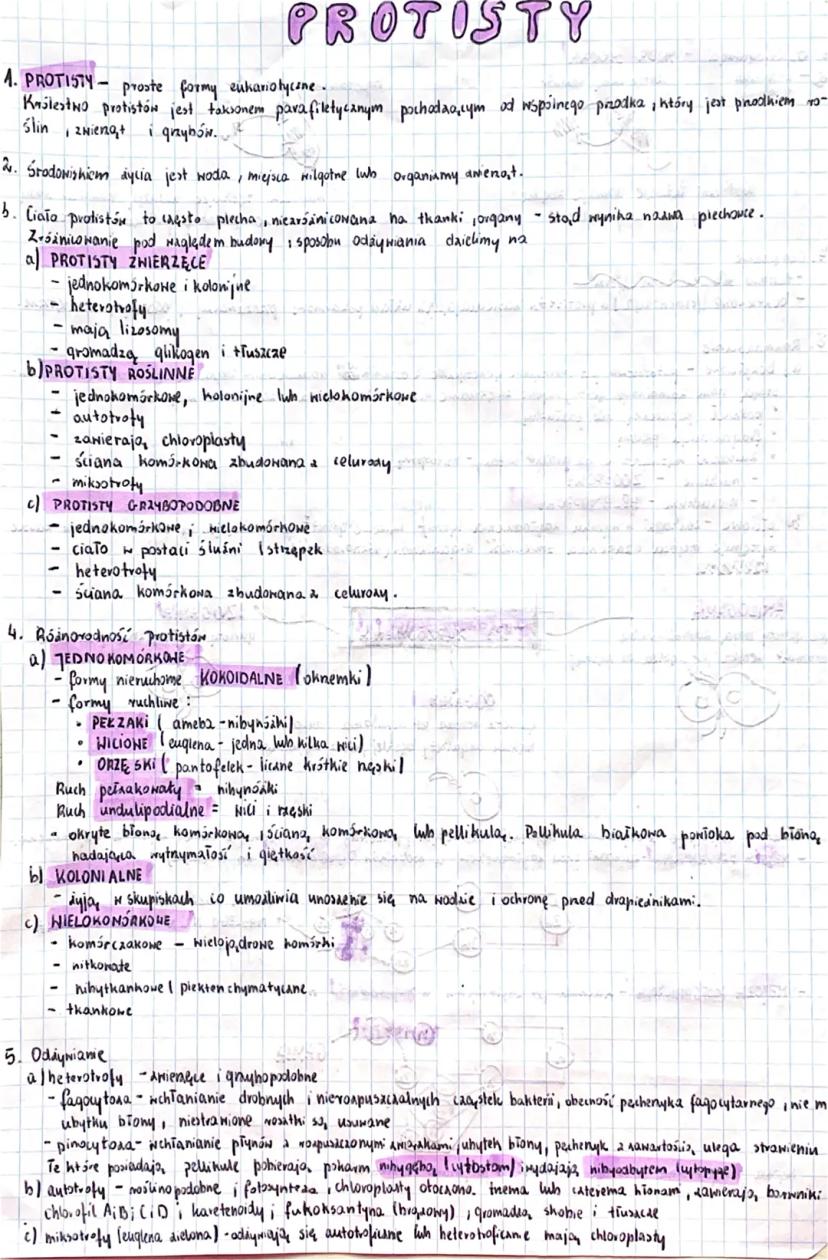 PROTISTY
1. PROTISTY - proste formy eukariotyczne.
Królestwo protistów jest taksonem parafiletycznym pochodzącym od wspólnego przodka, który jest przodkiem ro-
ślin, zwierząt i grzybów.
2. Środowiskiem życia jest woda, miejsca wilgotne lub organizmy zwierząt.
3. Ciało protistów to często plecha, niezróżnicowana na tkanki, organy - stąd wynika nazwa plechowce.
Zróżnicowanie pod względem budowy i sposobu odżywiania dzielimy na
a) PROTISTY ZWIERZĘCE
- jednokomórkowe i kolonijne
- heterotrofy
- mają lizosomy
- gromadzą glikogen i tłuszcze
b) PROTISTY ROŚLINNE
- jednokomórkowe, kolonijne lub wielokomórkowe
- autotrofy
- zawierają chloroplasty
- ściana komórkowa zbudowana z celurozy
- miksotrofy
c) PROTISTY GRZYBOPODOBNE
- jednokomórkowe i wielokomórkowe
- ciało w postaci śluźni i strzępek
- heterotrofy
- ściana komórkowa zbudowana z celurozy.
4. Różnorodność Protistów
a) JEDNOKOMÓRKOWE
- formy nieruchome KOKOIDALNE (okrzemki)
- formy ruchliwe:
• PEŁZAKI (ameba - nibynóżki)
• WICIOWE (euglena - jedna lub kilka wici)
• ORZĘSKI (pantofelek - liczne krótkie rzęski)
Ruch pełzakowaty = nibynóżki
Ruch undulipodialne = wici i rzęski
- okryte błoną komórkową, ścianą komórkową lub pellikulą. Pellikula białkowa powłoka pod błoną,
nadająca wytrzymałość i giętkość
b) KOLONIALNE
- żyją w skupiskach co umożliwia unoszenie się na wodzie i ochronę przed drapieżnikami.
c) WIELOKOMÓRKOWE
- komórczakowe - wielojądrowe komórki
- nitkowate
- nibytkankowe (plektenchymatyczne
- tkankowe
5. Odżywianie
a) heterotrofy - zwierzęce i grzybopodobne
- fagocytoza - wchłanianie drobnych i nierozpuszczalnych cząstek bakterii, obecność pęcherzyka fagocytarnego, nie m
ubytku błony, niestrawione resztki są usuwane
- pinocytoza - wchłanianie płynów z rozpuszczonymi związkami, ubytek błony, pęcherzyk z zawartością ulega strawieniu
Te które posiadają pellikulę pobierają pokarm nibygębą (cytostom) i wydalają nibyodbytem (cytopyge)
b) autotrofy - roślinopodobne, fotosynteza, chloroplasty otoczone trzema lub czterema błonami, zawierają barwniki
chlorofil A i B i C i D, karotenoidy i fukoksantyna (brązowy), gromadzą skobie i tłuszcze
c) miksotrofy (euglena zielona) - odżywiają się autotroficzne lub heterotroficzne mają chloroplasty